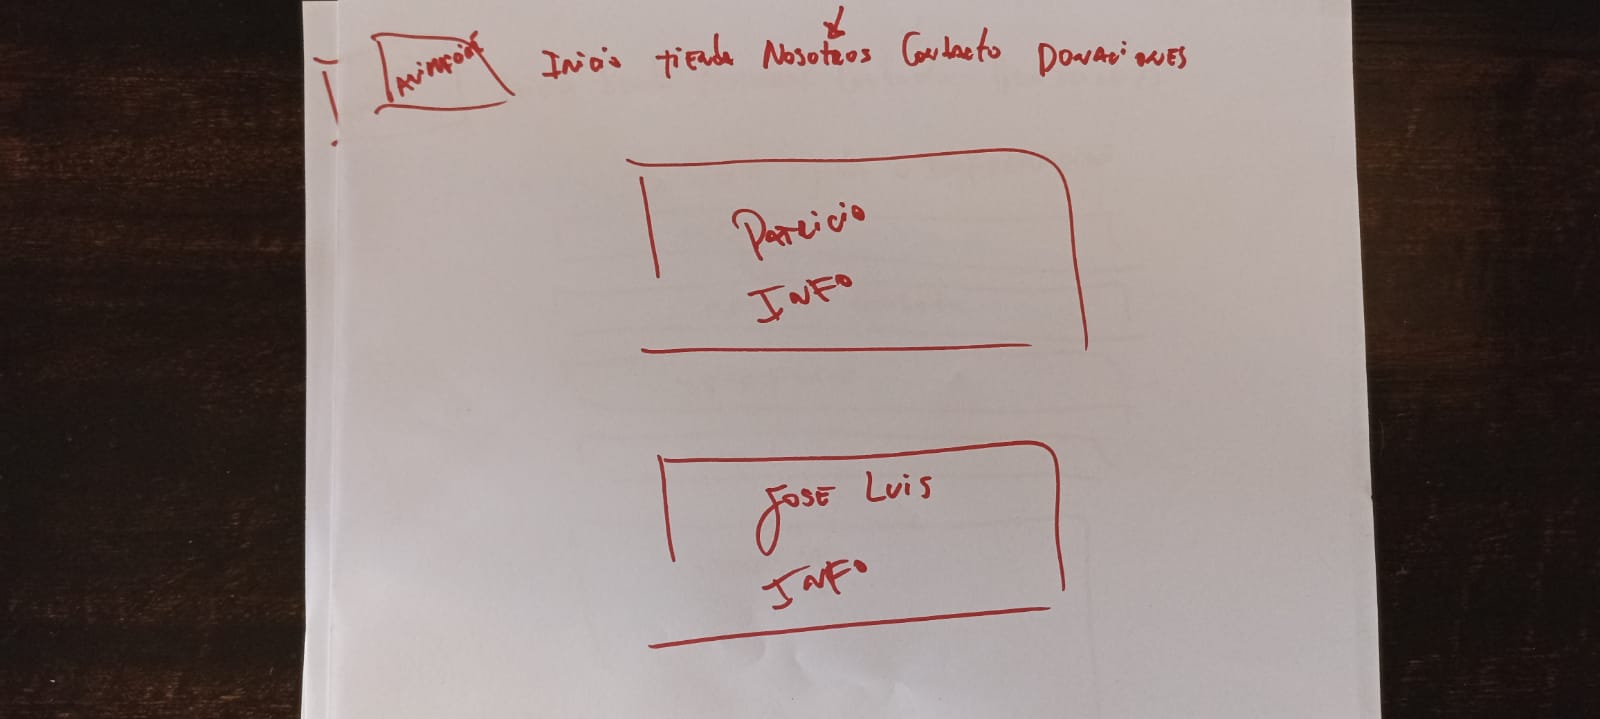 Inicio tienda Nosotros Contacto Donaciones
Patricio
INFO
Jose Luis
INFO